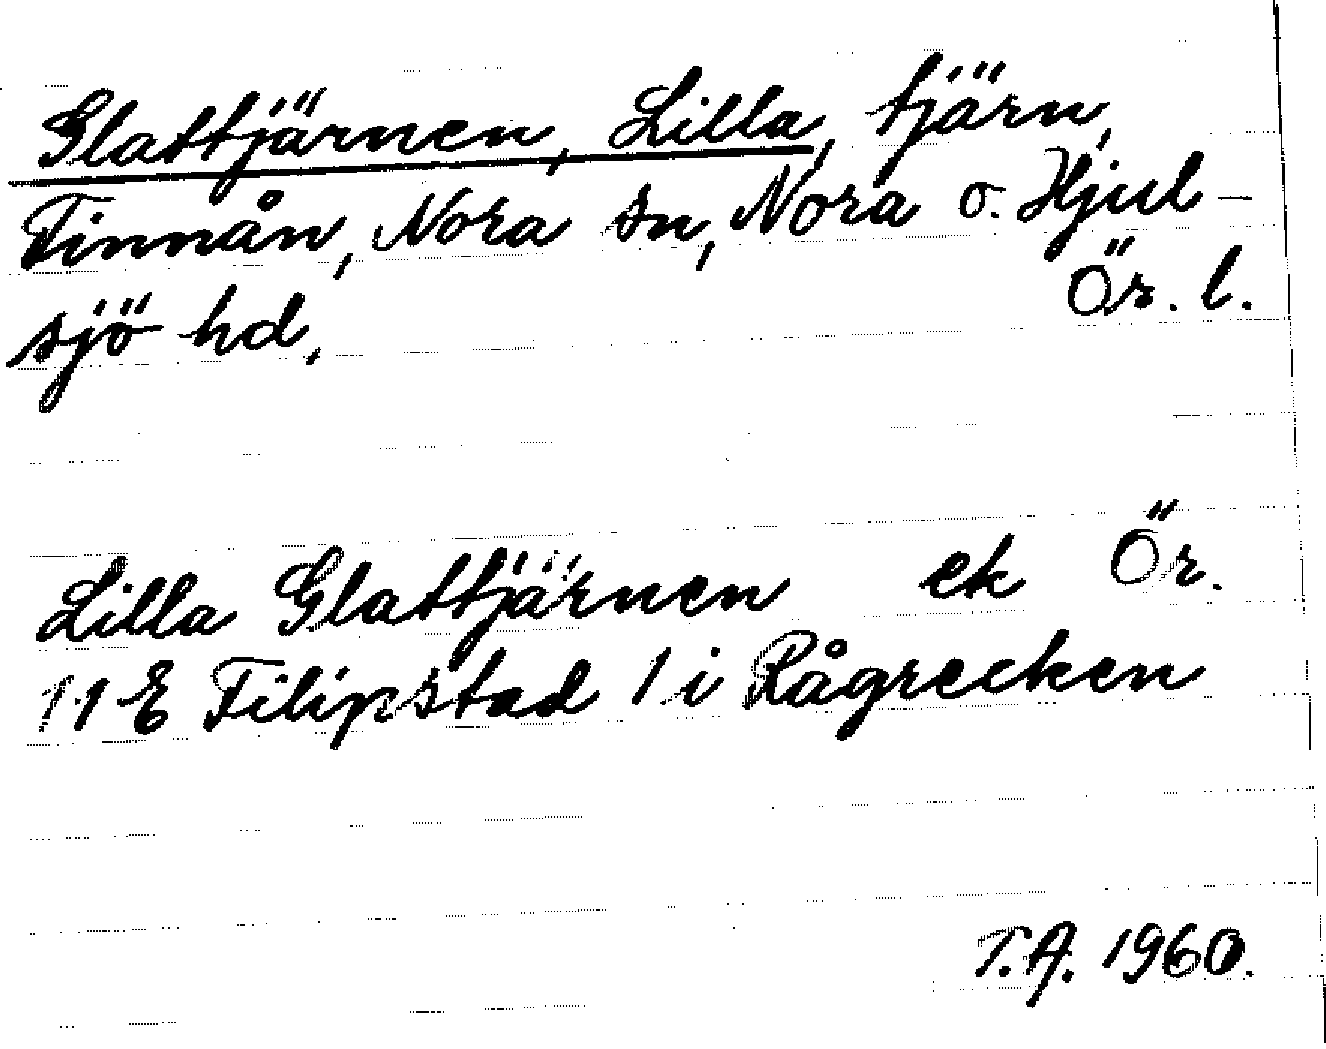 Glattjärnen, Lilla, tjärn,
Finnån, Nora sn, Nora o. Hjul-
sjö hd, Ör. l.
Lilla Glattjärnen ek Ör.
11 E Filipstad 1 i Rågrecken
T.A. 1960.